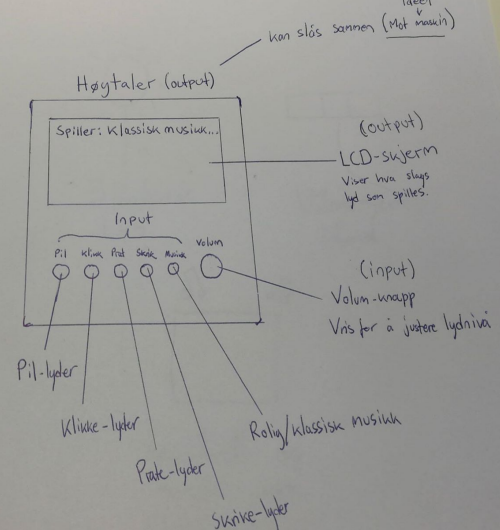 Ideel
kan slås sammen (Mot maskin)
Høytaler (output)
Spiller: Klassisk musikk...
(output)
LCD-skjerm
Viser hva slags
lyd som spilles.
Input
Pil Klikk Prat Skrik Musikk Volum
(input)
Volum-knapp
Vris for å justere lydnivå
Pil-lyder
Klikke-lyder
Rolig/klassisk musikk
Prate-lyder
Skrike-lyder